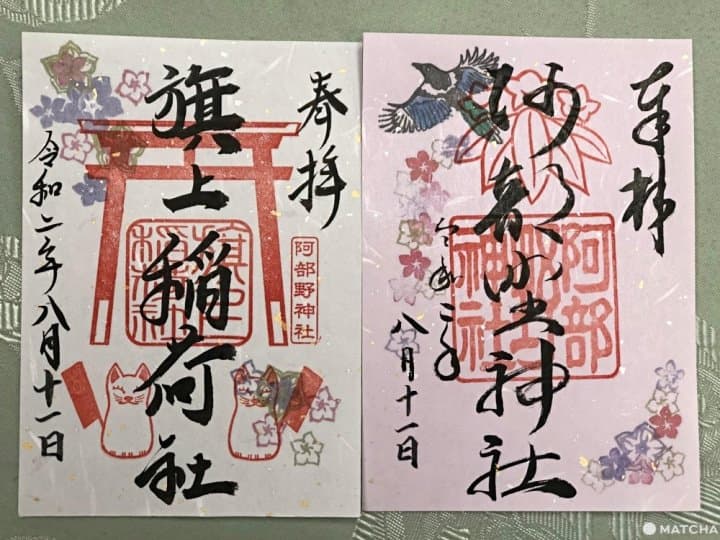 奉拝
旗上稲荷社
阿部野神社
令和二年八月十一日
奉拝
阿部野神社
阿部
野神社
令和二年
八月十一日
MATCHA